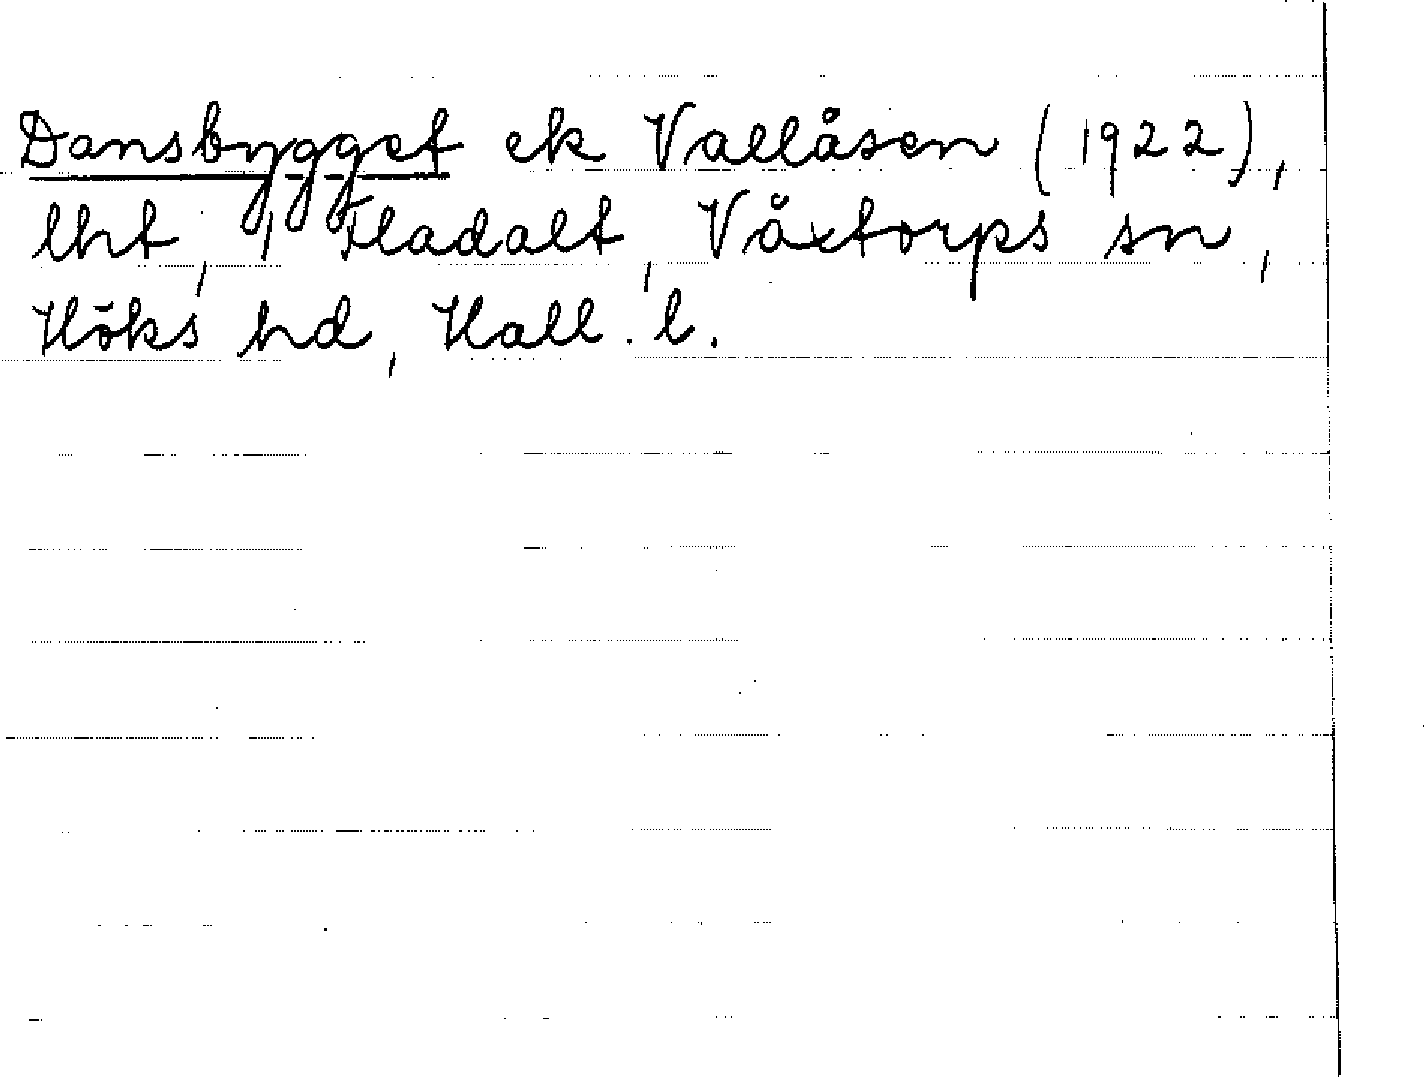 Dansbygget ek Vallåsen (1922),
lht, 1 Fladalt, Våxtorps sn,
Höks hd, Hall. l.